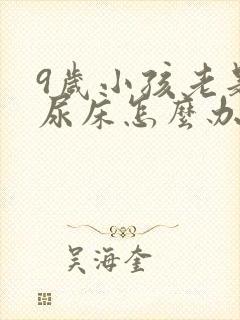 9歲小孩老是
尿床怎麼办
吴海奎